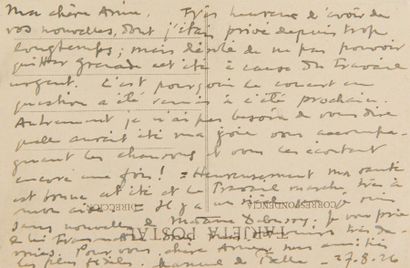 Ma chère Amie, Très heureux d'avoir de
vos nouvelles, dont j'étais privé depuis trop
longtemps; mais désolé de ne pas pouvoir
quitter Grenade cet été à cause du travail
urgent. C'est pourquoi le concert en
question a été remis à l'été prochain.
Autrement je n'ai pas besoin de vous dire
quelle aurait été ma joie vous accompa-
gnant les chansons et vous les écoutant
encore une fois! Heureusement ma santé
est bonne cet été et le travail marche très à
mon aise. Il y a
sans nouvelles de Madame Debussy. Je vous prie
de lui
Pour vous, chère Amie, mes amitiés
les plus fidèles. Manuel de Falla 27.8.26
CORRESPONDENCIA
DIRECCION
TARJETA POSTAL